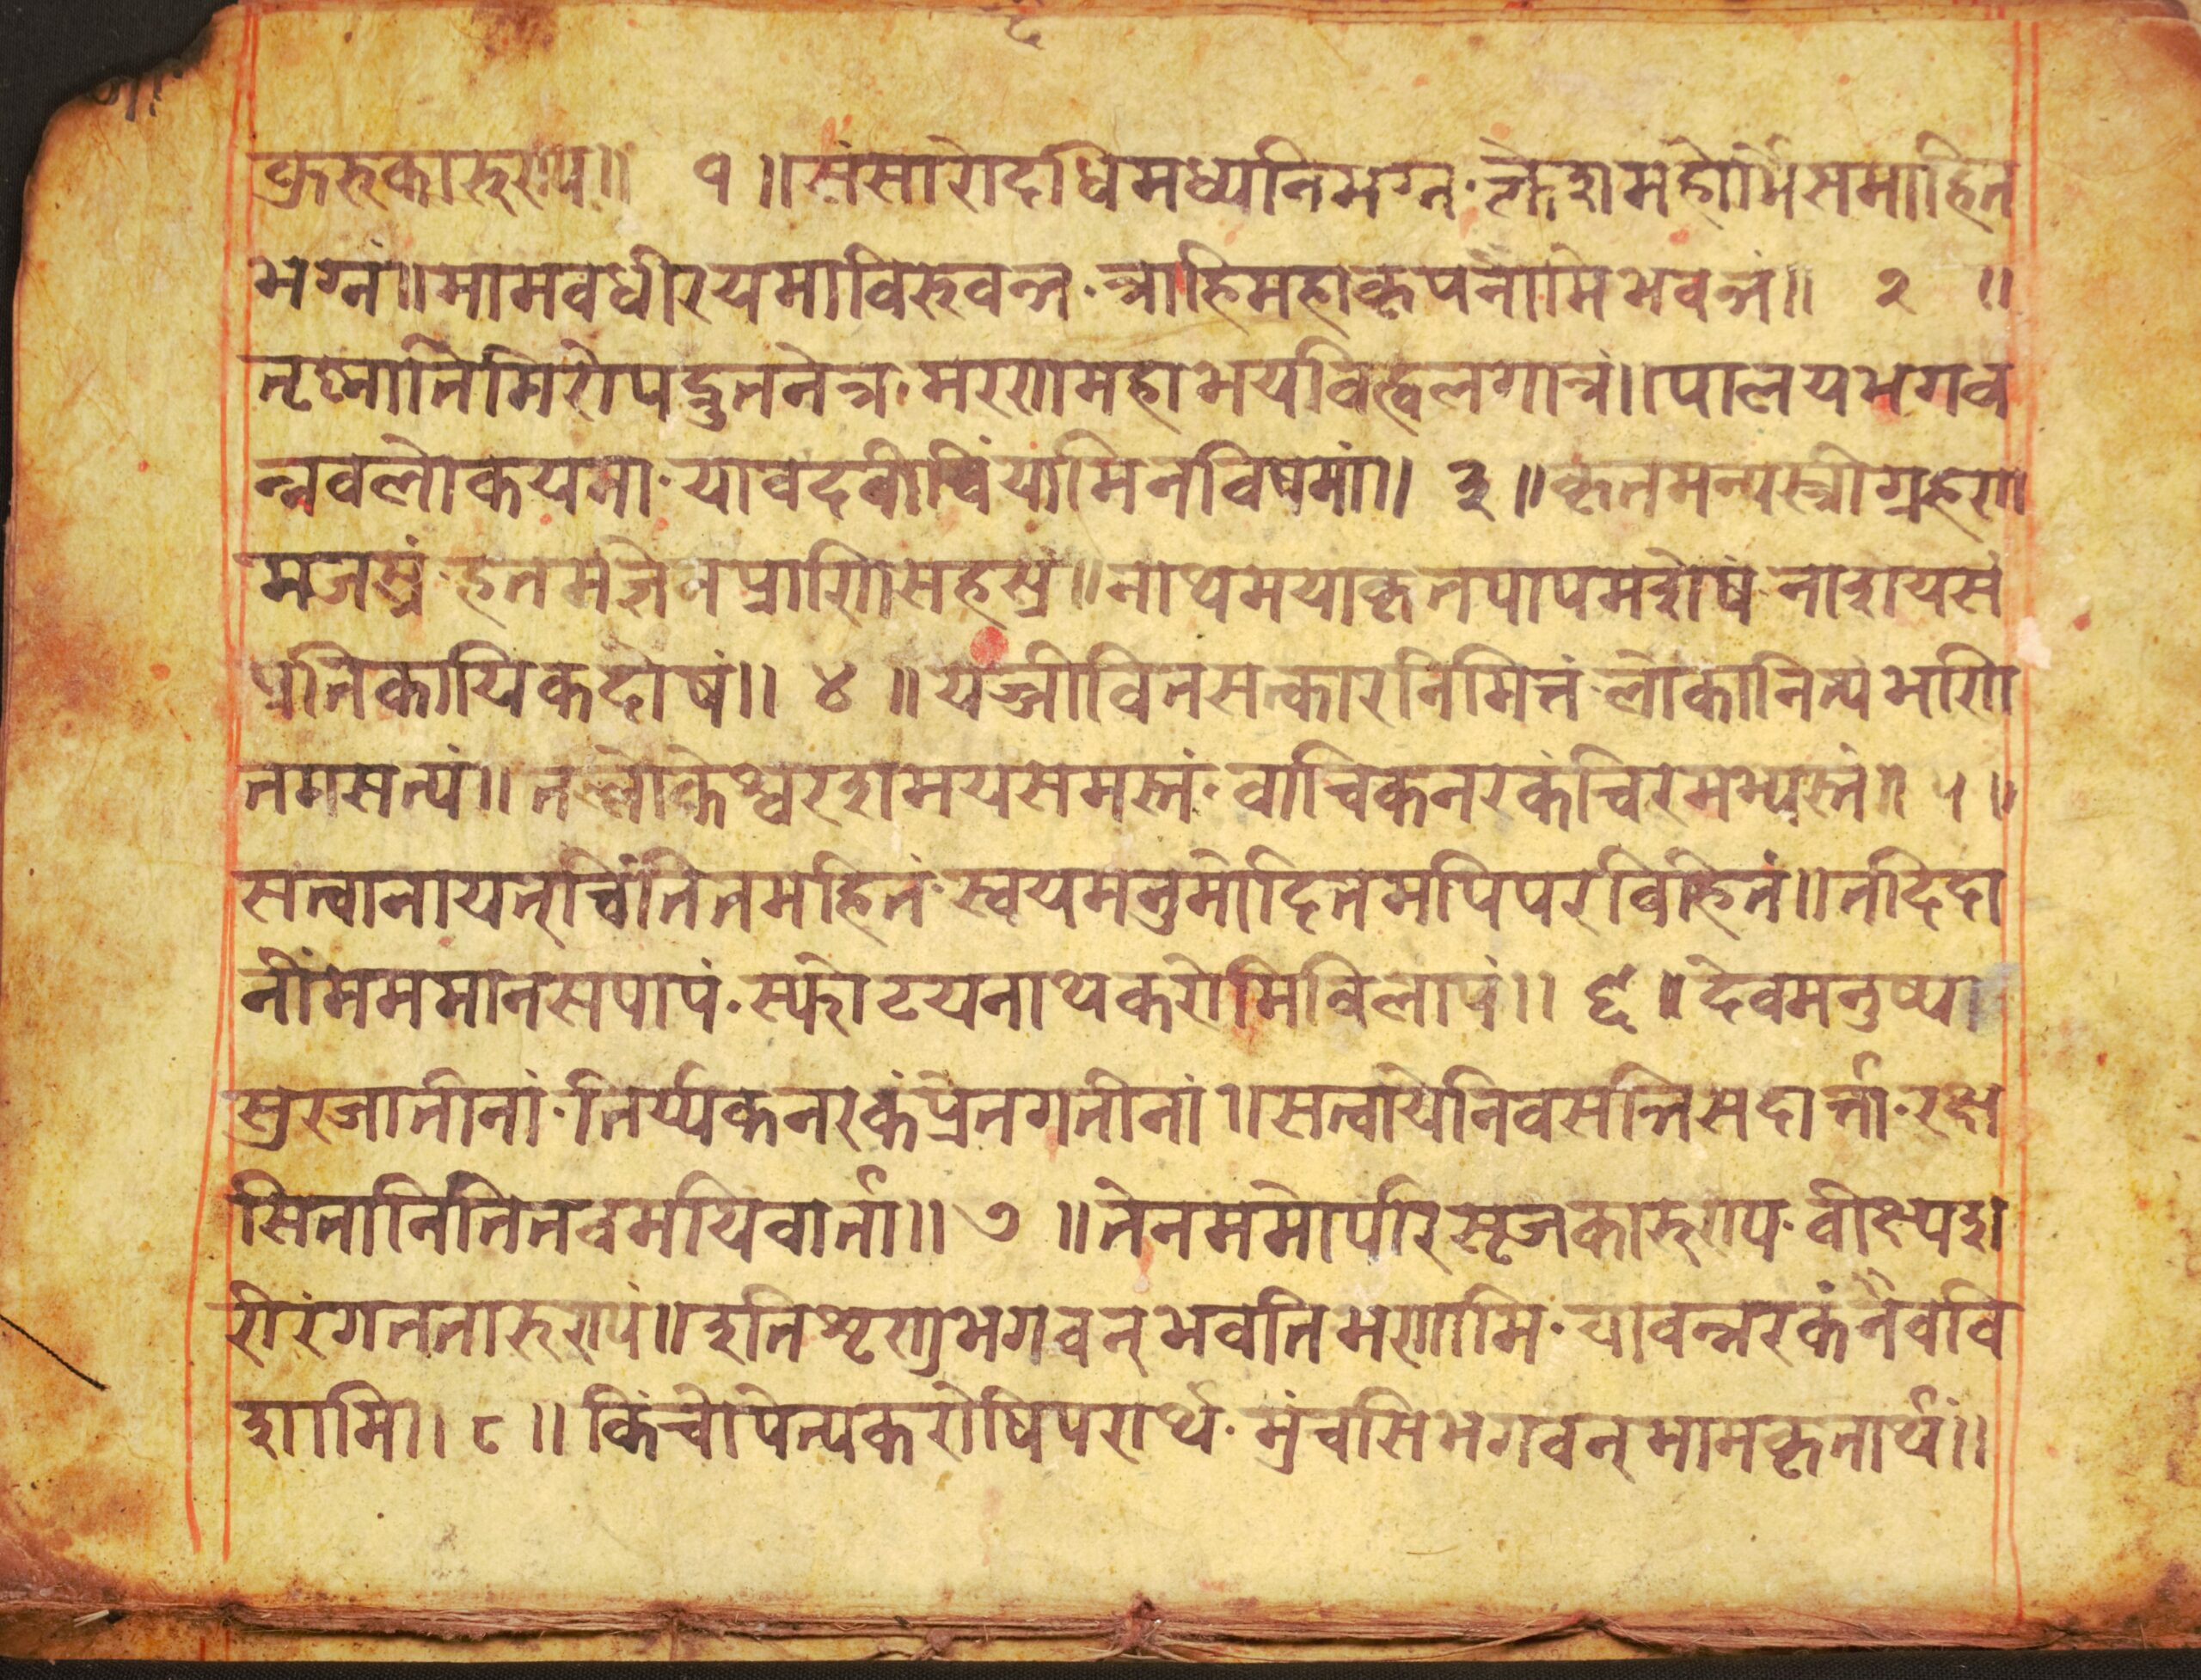 क्रुरुकारुण्य॥ १ ॥संसारोदधिमध्यनिमग्न·क्लेशमहोर्भिसमाहित
भग्नं॥मामवधीरयमाविरुवन्त·न्त्राहिमहाकृपनौमिभवन्तं॥ २ ॥
तृष्नातिमिरोपद्रुतनेत्र·मरणमहाभयविह्वलगात्रं॥पालयभगव
न्नवलोकयमा·यावदवीचिंयामिनविषमां॥ ३ ॥कृतमन्यस्त्रीग्रहण
मजस्रं·हतमज्ञेनप्राणिसहस्रं॥नाथमयाकृतपापमशेषं·नाशयसं
प्रतिकायिकदोषं॥ ४ ॥यज्जीवितसत्कारनिमित्तं·लोकानित्यंभणि
तमसत्यं॥तल्लोकेश्वरशमयसमस्तं·वाचिकनरकंचिरमभ्यस्तं॥ ५ ॥
सत्वानायत्चिंतितमहितं·स्वयमनुमोदितमपिपरविहितं॥तदिदा
नींमेममानसपापं·स्फोटयनाथकरोमिविलापं॥ ६ ॥देवमनुष्या
सुरजातीनां·तिर्य्यकनरकंप्रेतगतीनां॥सत्वायेनिवसन्तिसदार्त्ता·रक्ष
सितानितितवमयिवार्ता॥ ७ ॥तेनममोपरिसृजकारुण्य·वीक्ष्यश
रीरंगततारुण्यं॥इतिशृणुभगवन्भवतिभणामि·यावन्नरकंनैववि
शामि॥ ८ ॥ किंचोपेत्यकरोषिपरार्थ·मुंचसिभगवन्मामकृतार्थं॥